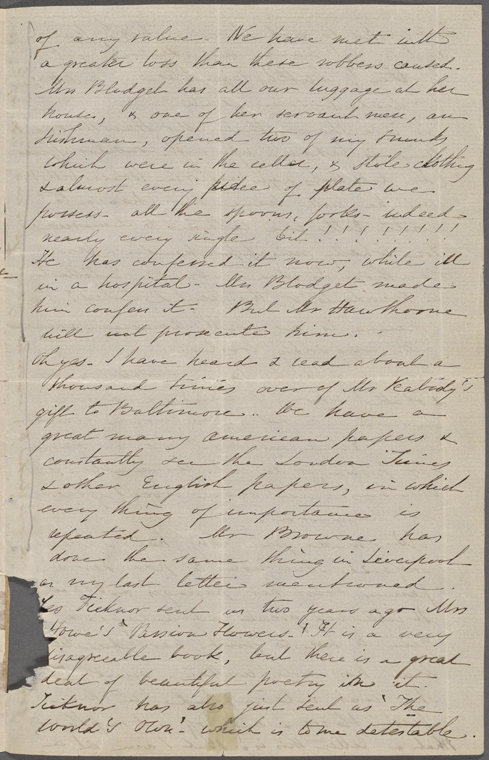 of any value. We have met with
a greater loss than these robbers caused.
Mrs Blodget has all our luggage at her
house, & one of her servant men, an
Irishman, opened two of my trunks
which were in the cellar, & stole clothing
& almost every piece of plate we
possess - all the spoons, forks - indeed
nearly every single bit!!!!!!!!
He has confessed it now, while ill
in a hospital - Mrs Blodget made
him confess it - But Mr Hawthorne
will not prosecute him.
Oh yes - I have heard & read about a
thousand times over of Mr Peabody's
gift to Baltimore. We have a
great many american papers &
constantly see the London Times
& other English papers, in which
every thing of importance is
repeated. Mr Browne has
done the same thing in Liverpool
as my last letter mentioned.
Ticknor sent us two years ago Mrs
Howe's "Passion Flowers." It is a very
disagreeable book, but there is a great
deal of beautiful poetry in it.
Ticknor has also just sent us "The
World's Own" which is to me detestable.